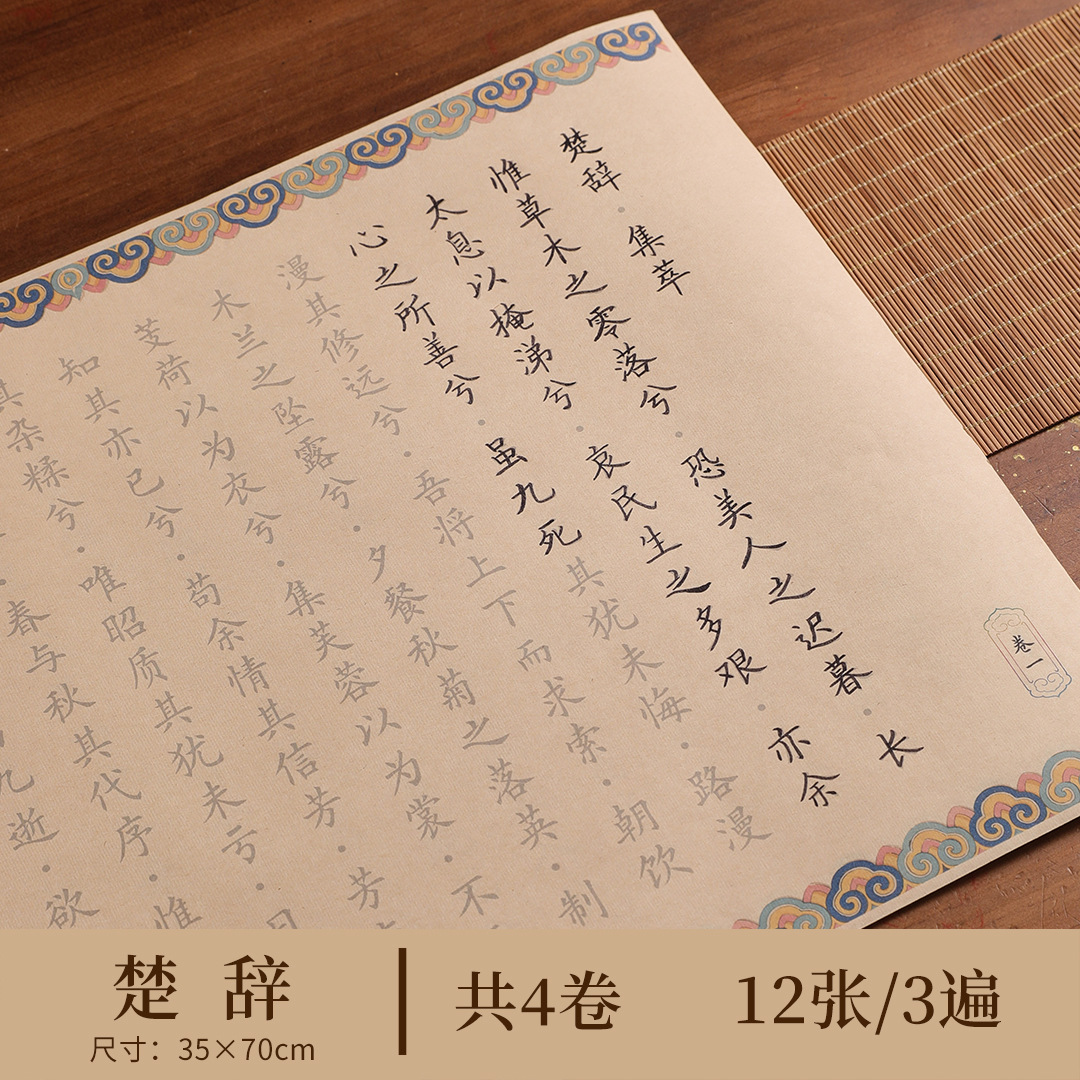 楚辞·集萃
惟草木之零落兮·恐美人之迟暮·长
太息以掩涕兮·哀民生之多艰·亦余
心之所善兮·虽九死其犹未悔·路漫
漫其修远兮·吾将上下而求索·朝饮
木兰之坠露兮·夕餐秋菊之落英·制
芰荷以为衣兮·集芙蓉以为裳·不
知其亦已兮·苟余情其信芳·芳
其杂糅兮·唯昭质其犹未亏·
春与秋其代序·惟
九逝·欲
卷一
楚辞
尺寸：35×70cm
共4卷
12张/3遍